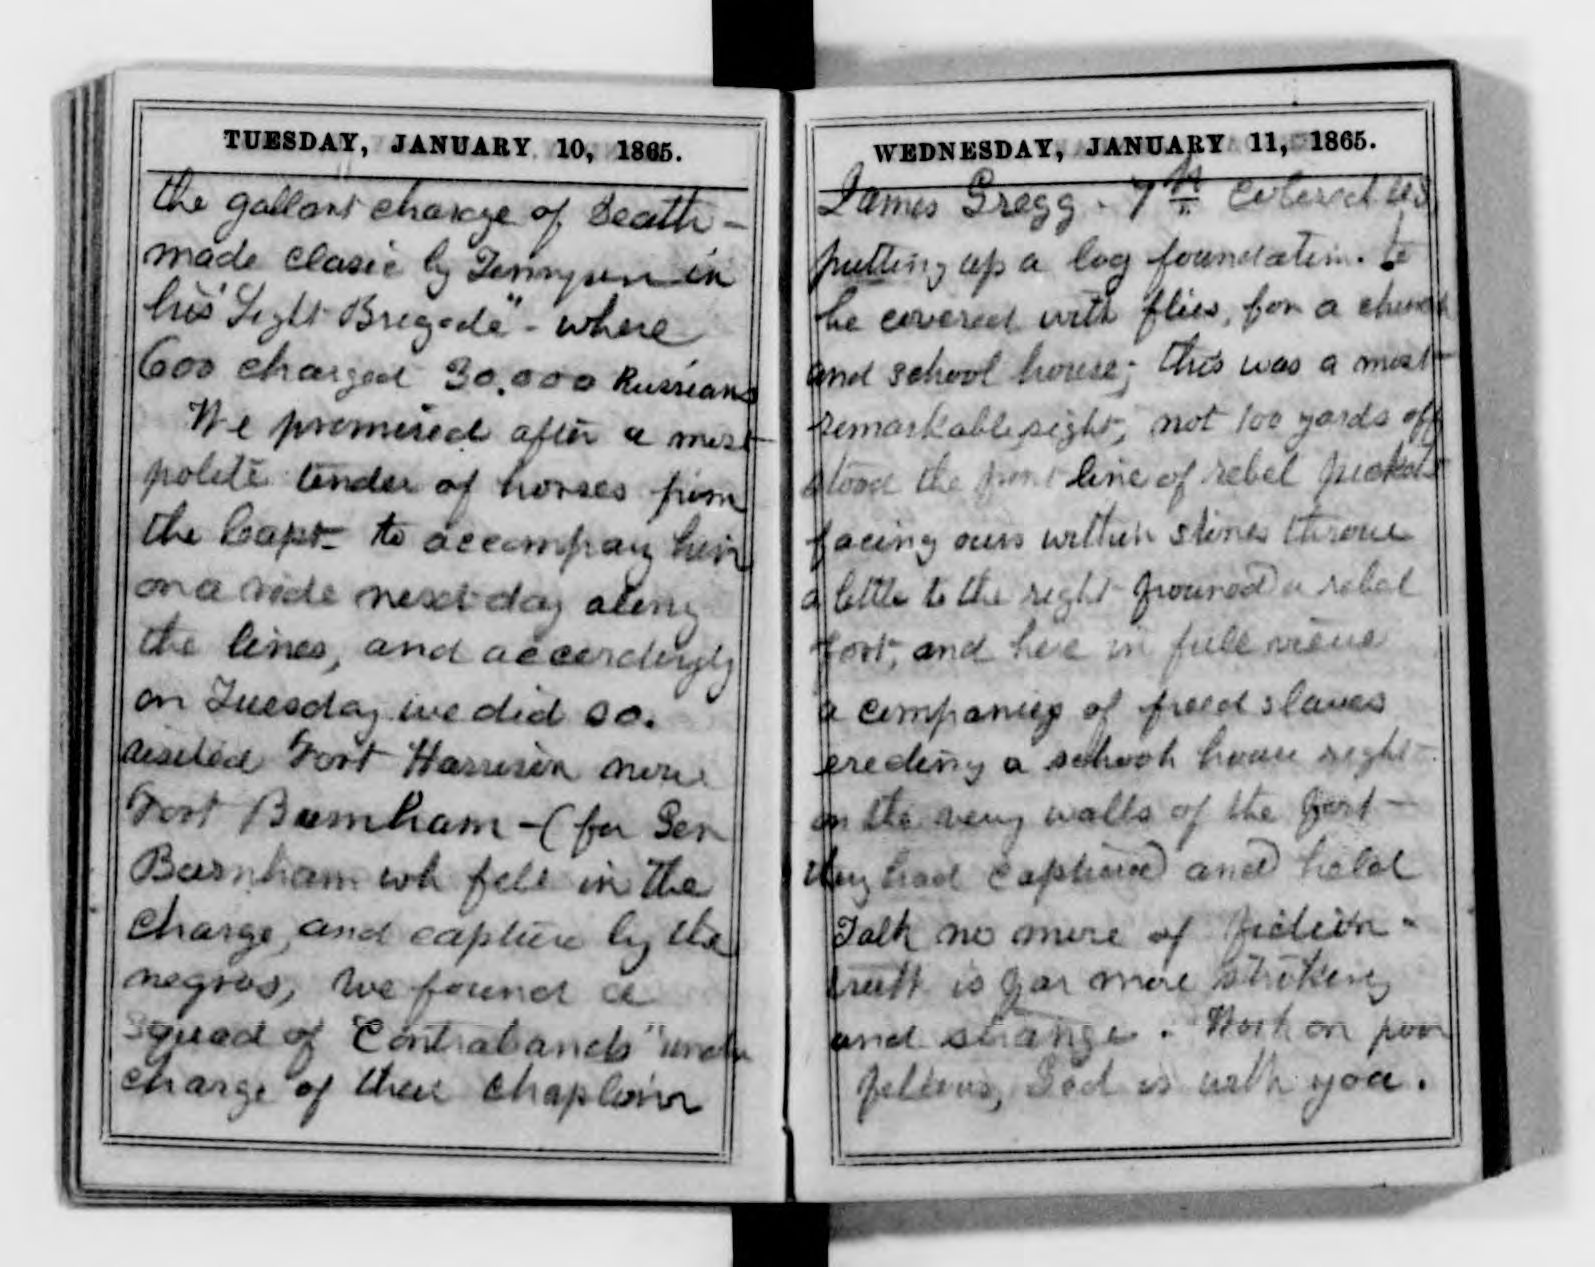 TUESDAY, JANUARY 10, 1865.
the gallant charge of Death -
made clasic by Tennyson in
his "Light Brigade" - where
600 charged 30.000 Russians
We promised after a most
polite tender of horses from
the Capt - to accompany him
on a ride next day along
the lines, and accordingly
on Tuesday we did so.
visited Fort Harrison now
Fort Burnham - (for Gen
Burnham wh fell in the
charge, and capture by the
negros, we found a
squad of "Contrabands" under
charge of their Chaplain
WEDNESDAY, JANUARY 11, 1865.
James Gregg. 7th Colored US
putting up a log foundation. to
be covered with flies, for a church
and school house; this was a most
remarkable sight, not 100 yards off
stood the front line of rebel pickets
facing ours within stones throw
a little to the right frowned a rebel
fort, and here in full view
a companies of freed slaves
erecting a school house right
on the very walls of the fort -
they had captured and held
Talk no more of fiction -
truth is far more striking
and strange. Work on poor
fellows, God is with you.